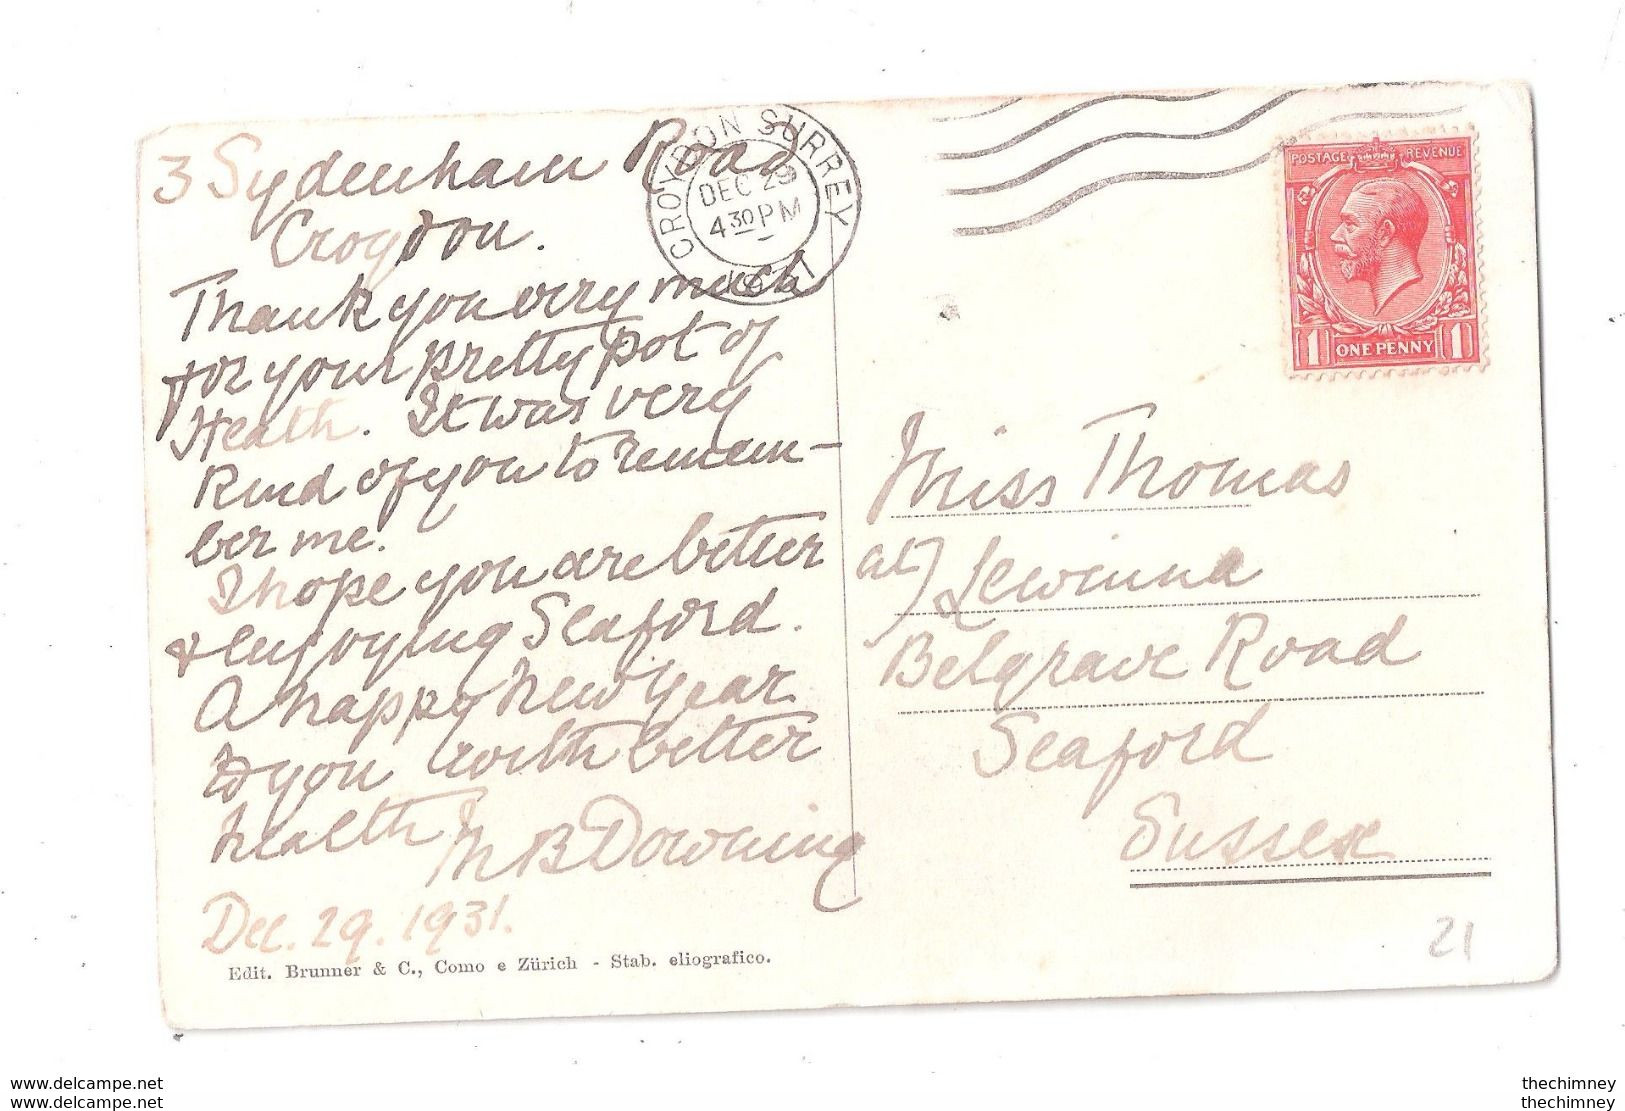 3 Sydenham Road
Croydon.
Thank you very much
for your pretty pot of
Heath. It was very
kind of you to remem-
ber me.
I hope you are better
& enjoying Seaford.
A happy New Year
to you with better
health M B Downing
Dec. 29. 1931.
Edit. Brunner & C., Como e Zürich - Stab. eliografico.
CROYDON SURREY
DEC 29
4 30 PM
1931
POSTAGE REVENUE
1 ONE PENNY 1
Miss Thomas
at) Lewinna
Belgrave Road
Seaford
Sussex
21
www.delcampe.net
www.delcampe.net
thechimney
thechimney